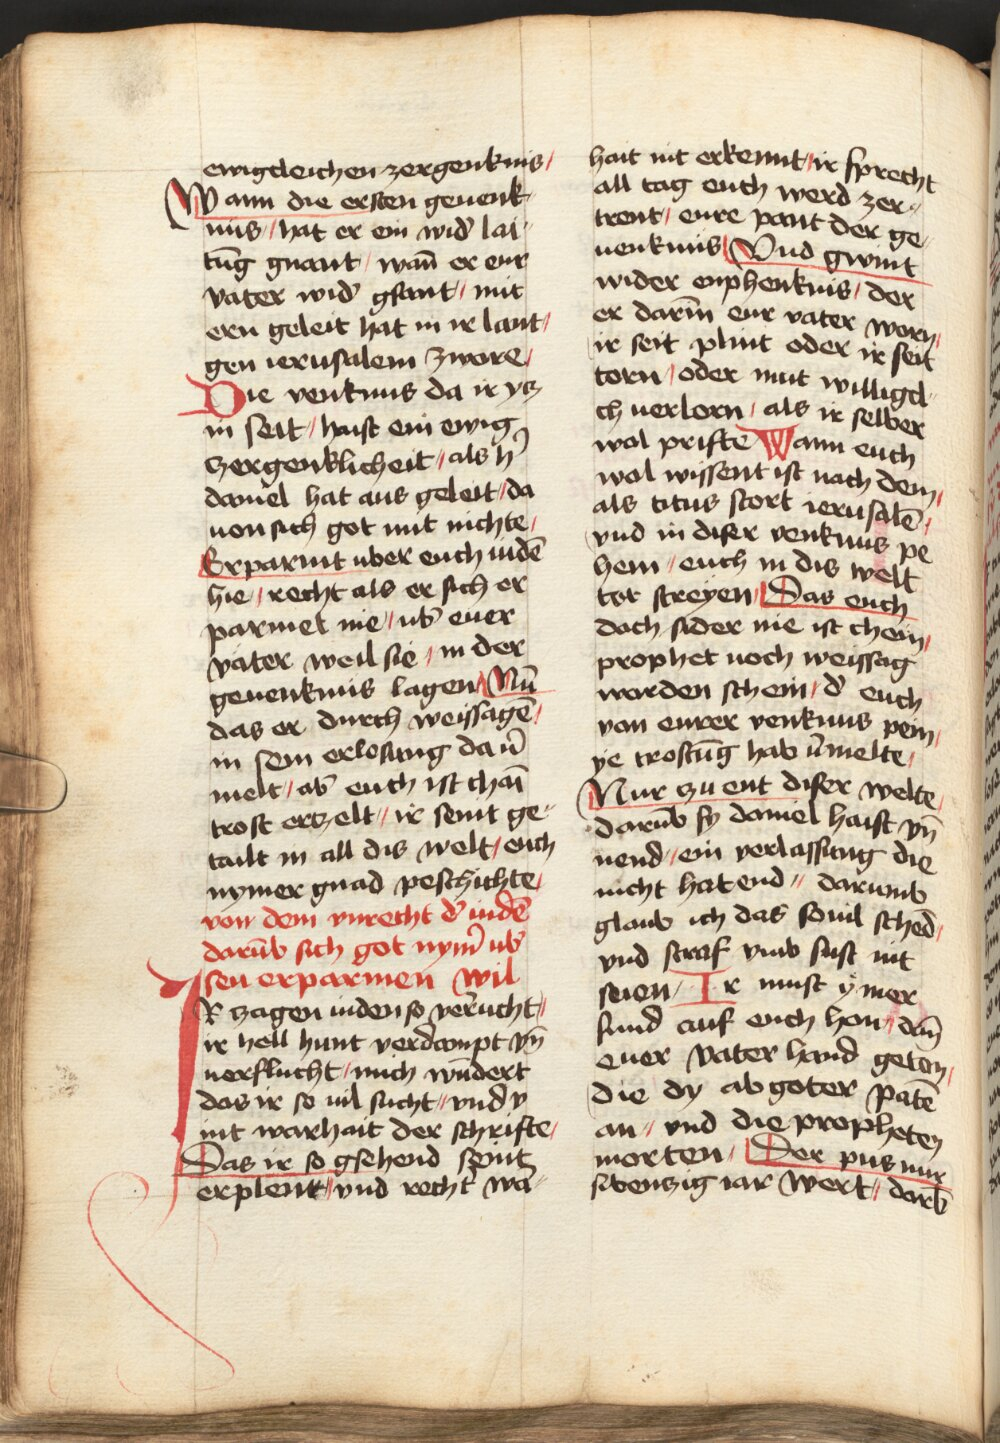 ewigcleichen zergenknis /
Wann die ersten geuenk-
nüs / hat er ein wid' lai-
tūg gnant / wañ er eur
vater wid' gsant / mit
ern geleit hat in ir lant /
gen ierusalem zwore /
Die venknus da ir yz
in seit / haist ein ewig
zergenklicheit / als h'
daniel hat aus geleit / da
uon sich got mit nichte /
Erparmt uber euch iudē
hie / recht als er sich er
parmet nie / ub' euer
väter weil sie / in der
geuenknüs lagen / Nū
das er durch weissagē /
in sein erlosung da v'
melt / ab' euch ist chaī
trost erzelt / ir seint ge-
tailt in all dis welt / euch
nymer gnad peschichte /
von dem vnrecht d' iudē
darūb sich got nym' ub'
seu erparmen wil
IR zagen iuden so verucht /
ir hell hunt verdampt vn̄
uerflucht / mich wūdert
das ir so uil sucht / vnd y
nit warhait der schrifte /
Das ir so gsehend seint
erplent / vnd recht wa-
hait nit erkennt / ir sprecht
all tag euch werd zer-
trent / eure pant der ge-
uenknüs / Vnd gwint
wider enphenknis / der
er darīn eur vater worn /
ir seit plint oder ir seit
torn / oder mut willigcl-
ch uerlorn / als ir selber
wol prifte Wann euch
wol wissent ist nach dem /
als titus stort ierusalē /
vnd in diser venknus pe
hem / euch in dis welt
tet streyen / Das euch
doch sider nie ist chein /
prophet noch weissag
worden schein / d' euch
von eurer venknus pein /
ye trostūg hab v'melte /
Nur zu ent diser welte /
darūb sy daniel haist vn̄
nend / ein verlassung die
nicht hat end // darumb
glaub ich das souil sched /
vnd straf vmb sust nit
seien / Ir must ymer
sund auf euch hon / dan̄
euer vater hand geton /
die dy abgoter patē
an / vnd die propheten
morten / Der pus nur
sibenzig iar wert / darb